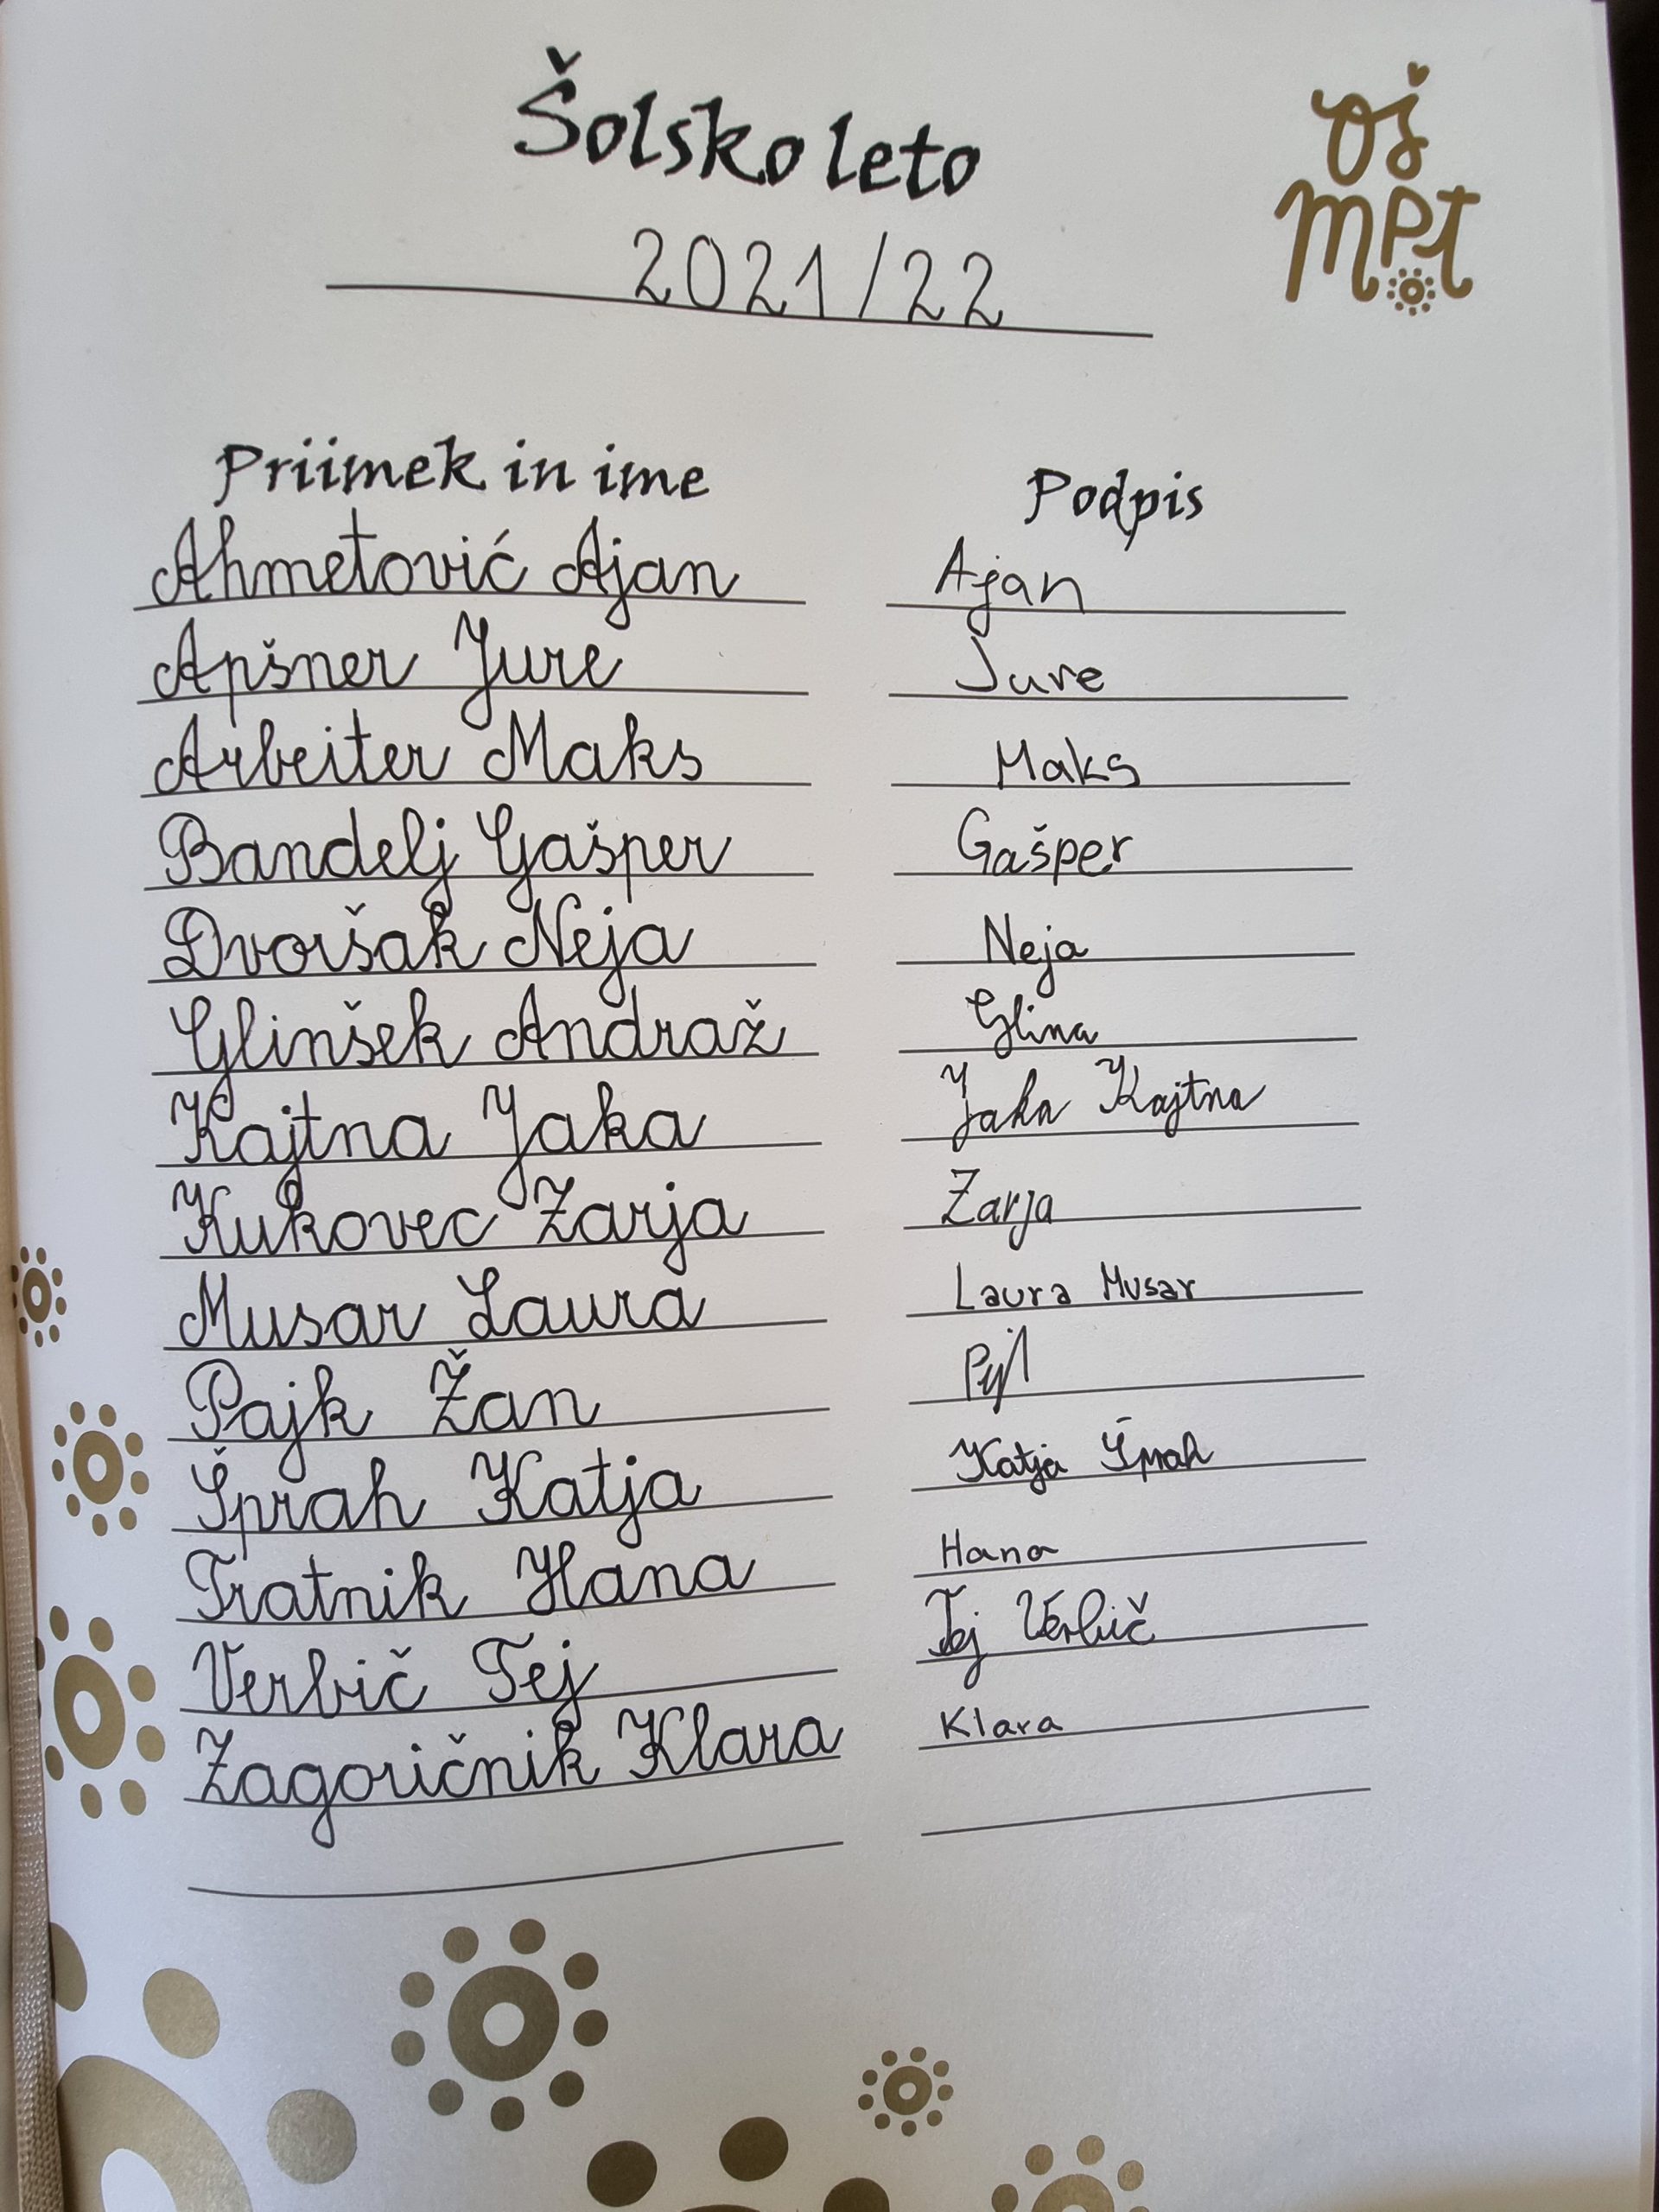 Šolsko leto
OŠ
MPT
2021/22
Priimek in ime Podpis
Ahmetović Ajan Ajan
Apšner Jure Jure
Arbeiter Maks Maks
Bandelj Gašper Gašper
Dvoršak Neja Neja
Glinšek Andraž Glina
Kajtna Jaka Jaka Kajtna
Kukovec Zarja Zarja
Musar Laura Laura Musar
Pajk Žan
Šprah Katja Katja Šprah
Tratnik Hana Hana
Verbič Tej Tej Verbič
Zagoričnik Klara Klara